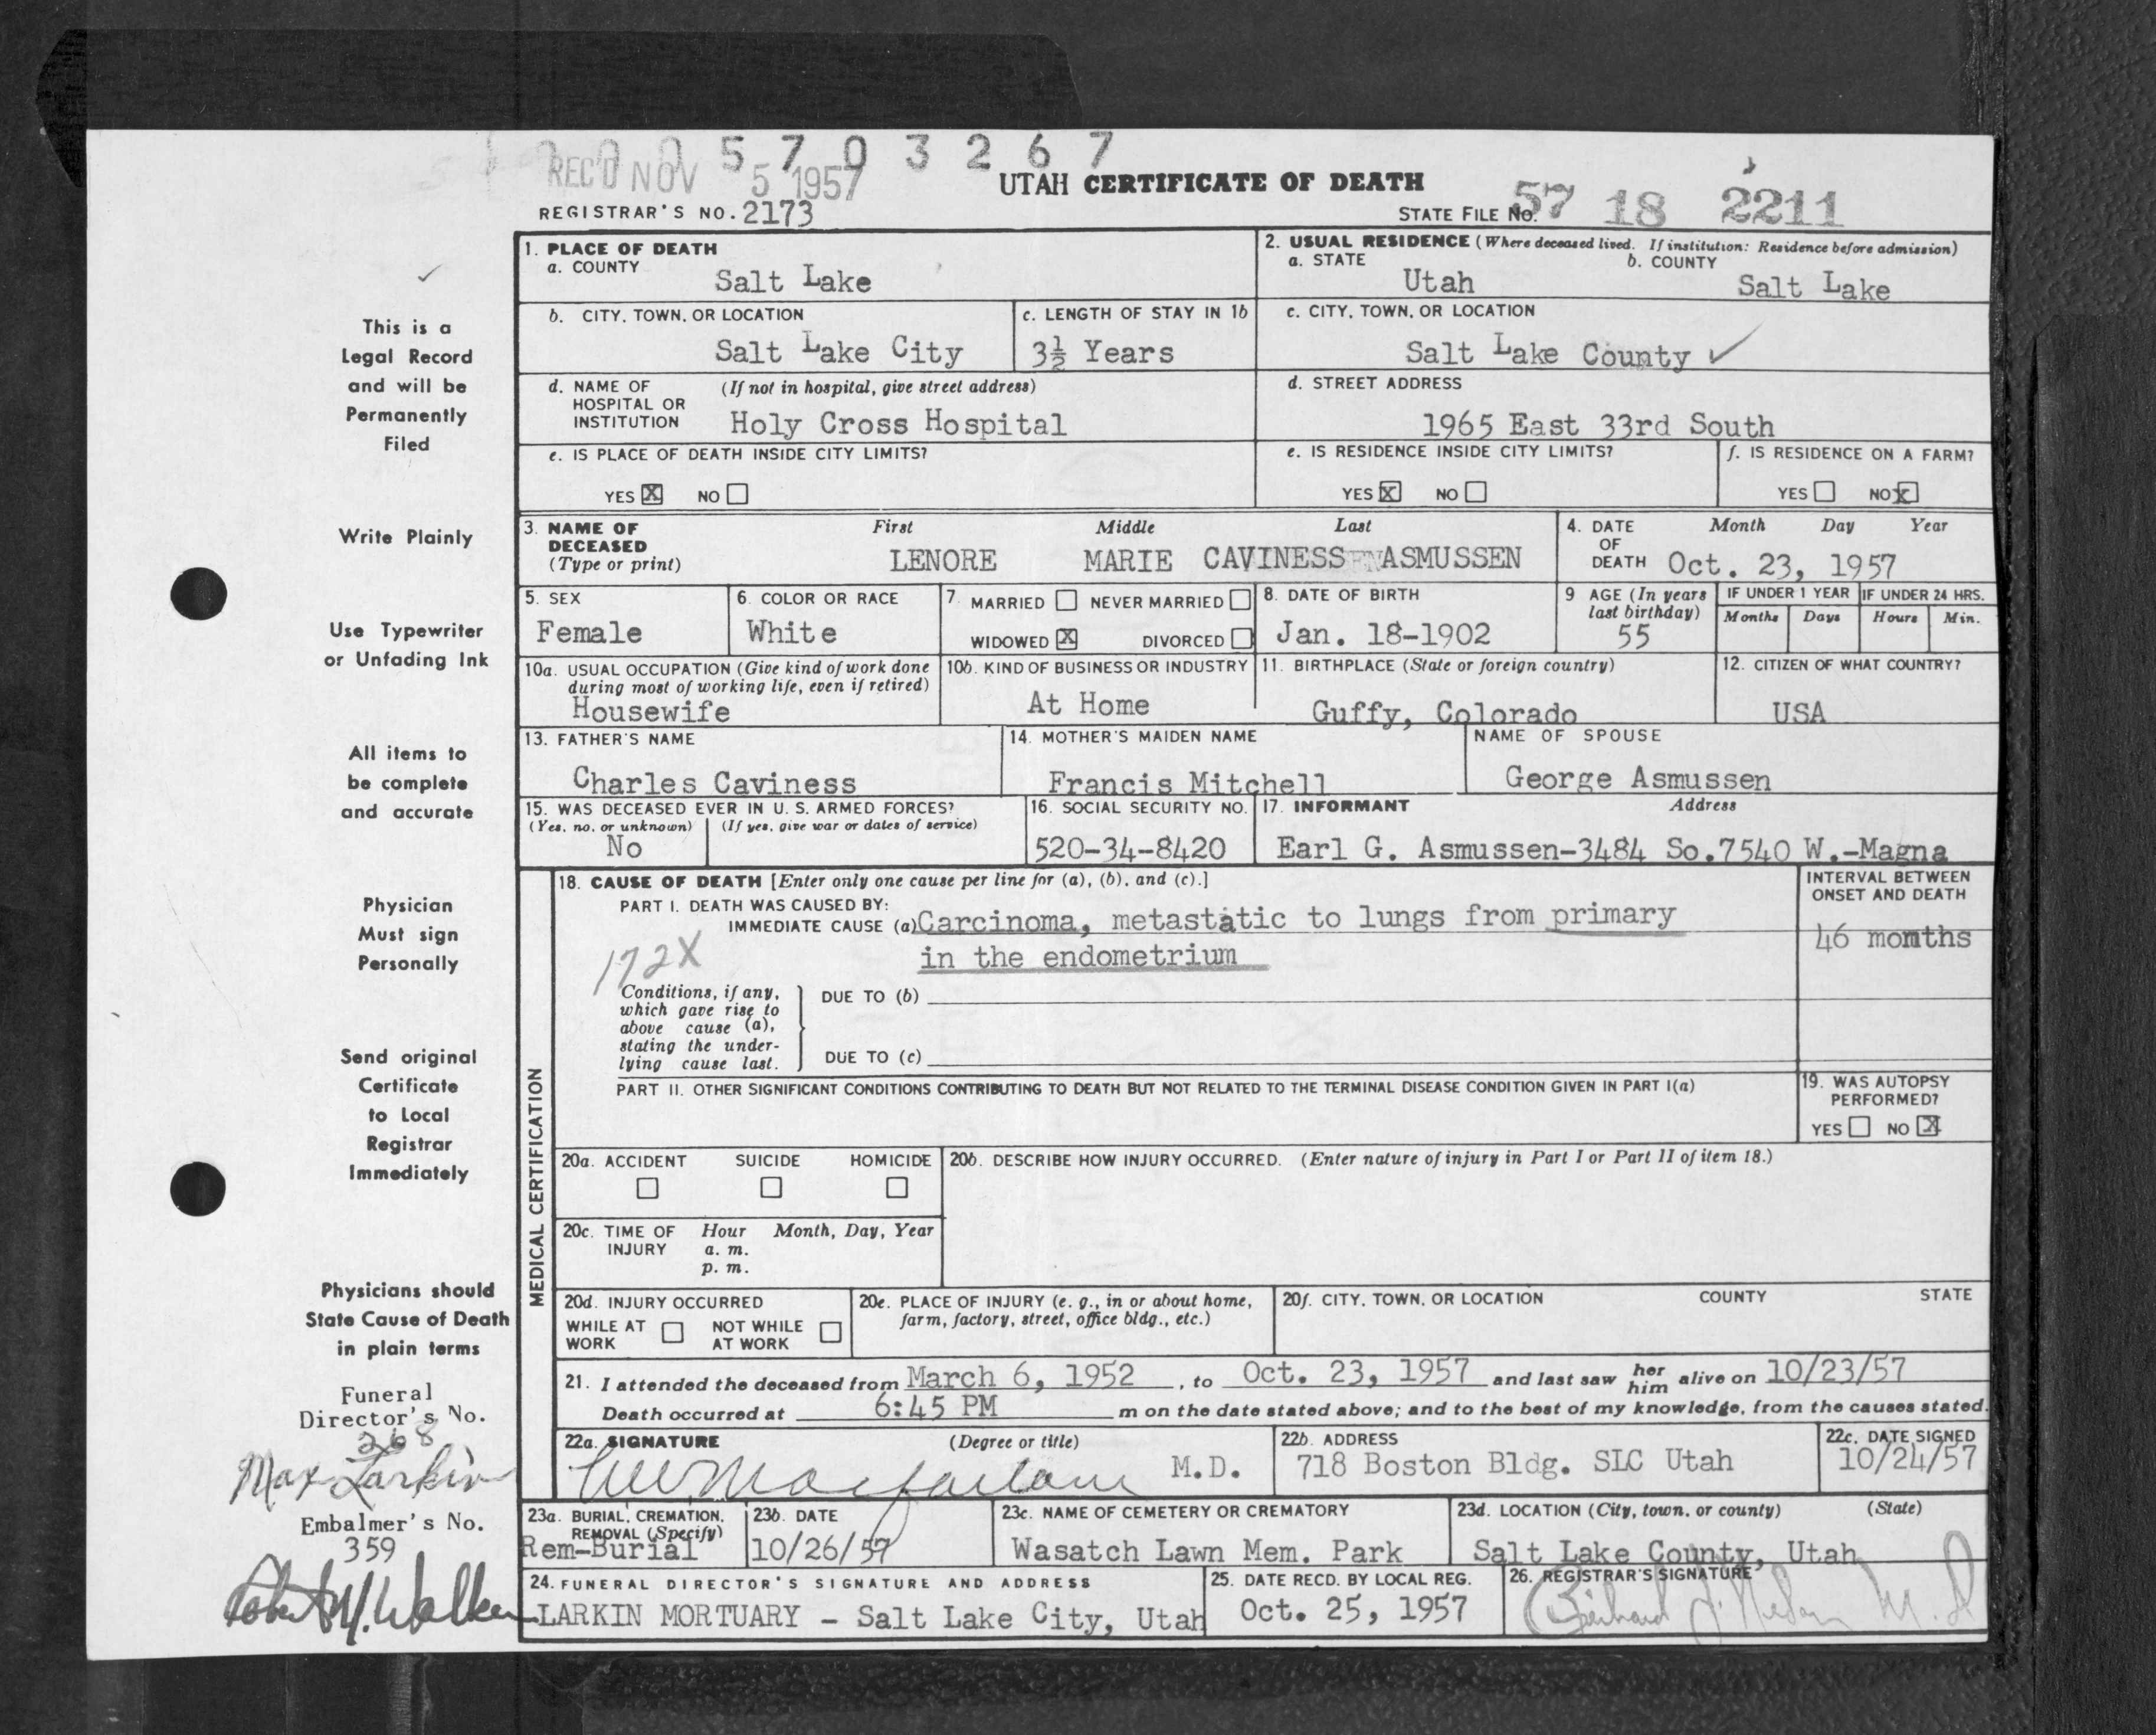 5703267
REC'D NOV 5 1957
UTAH CERTIFICATE OF DEATH
REGISTRAR'S NO. 2173
STATE FILE No. 57 18 2211
1. PLACE OF DEATH
a. COUNTY
Salt Lake
2. USUAL RESIDENCE (Where deceased lived. If institution: Residence before admission)
a. STATE
Utah
b. COUNTY
Salt Lake
b. CITY, TOWN, OR LOCATION
Salt Lake City
c. LENGTH OF STAY IN 1b
3½ Years
c. CITY, TOWN, OR LOCATION
Salt Lake County ✓
d. NAME OF HOSPITAL OR INSTITUTION
(If not in hospital, give street address)
Holy Cross Hospital
d. STREET ADDRESS
1965 East 33rd South
e. IS PLACE OF DEATH INSIDE CITY LIMITS?
YES X NO
e. IS RESIDENCE INSIDE CITY LIMITS?
YES X NO
f. IS RESIDENCE ON A FARM?
YES NO X
3. NAME OF DECEASED (Type or print)
First Middle Last
LENORE MARIE CAVINESS ASMUSSEN
4. DATE OF DEATH
Month Day Year
Oct. 23, 1957
5. SEX
Female
6. COLOR OR RACE
White
7. MARRIED NEVER MARRIED
WIDOWED X DIVORCED
8. DATE OF BIRTH
Jan. 18-1902
9 AGE (In years last birthday)
55
IF UNDER 1 YEAR
Months Days
IF UNDER 24 HRS.
Hours Min.
10a. USUAL OCCUPATION (Give kind of work done during most of working life, even if retired)
Housewife
10b. KIND OF BUSINESS OR INDUSTRY
At Home
11. BIRTHPLACE (State or foreign country)
Guffy, Colorado
12. CITIZEN OF WHAT COUNTRY?
USA
13. FATHER'S NAME
Charles Caviness
14. MOTHER'S MAIDEN NAME
Francis Mitchell
NAME OF SPOUSE
George Asmussen
15. WAS DECEASED EVER IN U. S. ARMED FORCES?
(Yes, no, or unknown) (If yes, give war or dates of service)
No
16. SOCIAL SECURITY NO.
520-34-8420
17. INFORMANT Address
Earl G. Asmussen-3484 So.7540 W.-Magna
MEDICAL CERTIFICATION
18. CAUSE OF DEATH [Enter only one cause per line for (a), (b), and (c).]
PART I. DEATH WAS CAUSED BY:
IMMEDIATE CAUSE (a) Carcinoma, metastatic to lungs from primary
in the endometrium
172X
INTERVAL BETWEEN ONSET AND DEATH
46 months
Conditions, if any, which gave rise to above cause (a), stating the underlying cause last.
DUE TO (b)
DUE TO (c)
PART II. OTHER SIGNIFICANT CONDITIONS CONTRIBUTING TO DEATH BUT NOT RELATED TO THE TERMINAL DISEASE CONDITION GIVEN IN PART I(a)
19. WAS AUTOPSY PERFORMED?
YES NO X
20a. ACCIDENT SUICIDE HOMICIDE
20b. DESCRIBE HOW INJURY OCCURRED. (Enter nature of injury in Part I or Part II of item 18.)
20c. TIME OF INJURY
Hour Month, Day, Year
a. m.
p. m.
20d. INJURY OCCURRED
WHILE AT WORK NOT WHILE AT WORK
20e. PLACE OF INJURY (e. g., in or about home, farm, factory, street, office bldg., etc.)
20f. CITY, TOWN, OR LOCATION COUNTY STATE
21. I attended the deceased from March 6, 1952, to Oct. 23, 1957 and last saw her him alive on 10/23/57
Death occurred at 6:45 PM m on the date stated above; and to the best of my knowledge, from the causes stated.
22a. SIGNATURE (Degree or title)
Macfarlane M.D.
22b. ADDRESS
718 Boston Bldg. SLC Utah
22c. DATE SIGNED
10/24/57
23a. BURIAL, CREMATION, REMOVAL (Specify)
Rem-Burial
23b. DATE
10/26/57
23c. NAME OF CEMETERY OR CREMATORY
Wasatch Lawn Mem. Park
23d. LOCATION (City, town, or county) (State)
Salt Lake County, Utah
24. FUNERAL DIRECTOR'S SIGNATURE AND ADDRESS
LARKIN MORTUARY - Salt Lake City, Utah
25. DATE RECD. BY LOCAL REG.
Oct. 25, 1957
26. REGISTRAR'S SIGNATURE
M.D.
This is a
Legal Record
and will be
Permanently
Filed
Write Plainly
Use Typewriter
or Unfading Ink
All items to
be complete
and accurate
Physician
Must sign
Personally
Send original
Certificate
to Local
Registrar
Immediately
Physicians should
State Cause of Death
in plain terms
Funeral
Director's No.
268
Max Larkin
Embalmer's No.
359
Robert Y. Walker